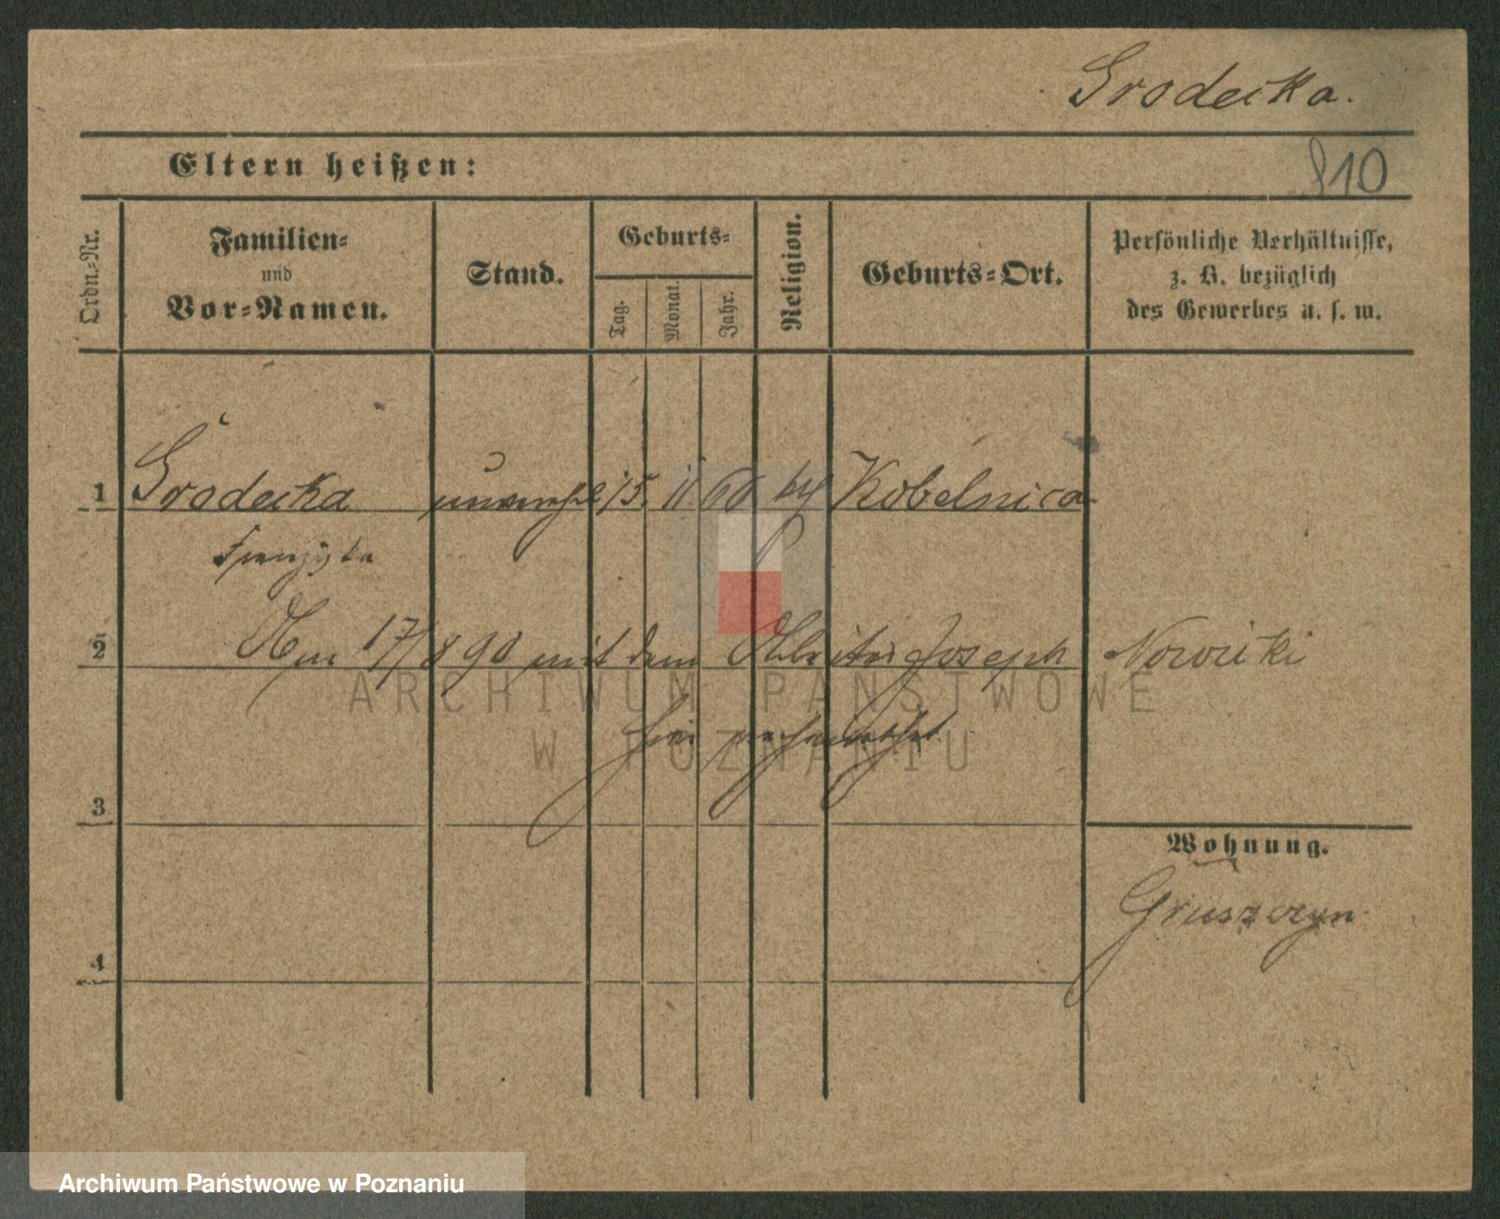 Grodecka.
Eltern heißen:
810
Ordn.-Nr.
Familien-
und
Vor-Namen.
Stand.
Geburts-
Tag.
Monat.
Jahr.
Religion.
Geburts-Ort.
Persönliche Verhältnisse,
z. B. bezüglich
des Gewerbes u. s. w.
1 Grodecka unverehl 15. 11. 60 kth Kobelnica
Franziska
2 Am 17/8 90 mit dem Arbeiter Joseph Nowicki
hier verheirathet
3
Wohnung.
Gruszczyn
4
ARCHIWUM PAŃSTWOWE
W POZNANIU
Archiwum Państwowe w Poznaniu